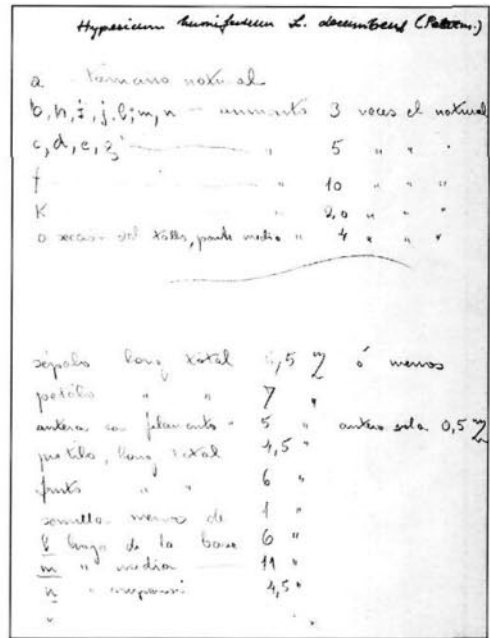 Hypericum humifusum L. decumbens (Peterm.)
a tamaño natural
b, h, i, j, l; m, n — aumento 3 veces el natural
c, d, e, g — " 5 " " "
f — " 10 " " "
K " 20 " " "
o seccion del tallo, parte media " 4 " " "
sépalo long total 6,5 ó menos
petálo " " 7 "
antera con filamento " 5 " antera sola 0,5
pistilo, long total 4,5 "
fruto " " 6 "
semilla menos de 1 "
l hoja de la base 6 "
m " media 11 "
n " 4,5 "
" "